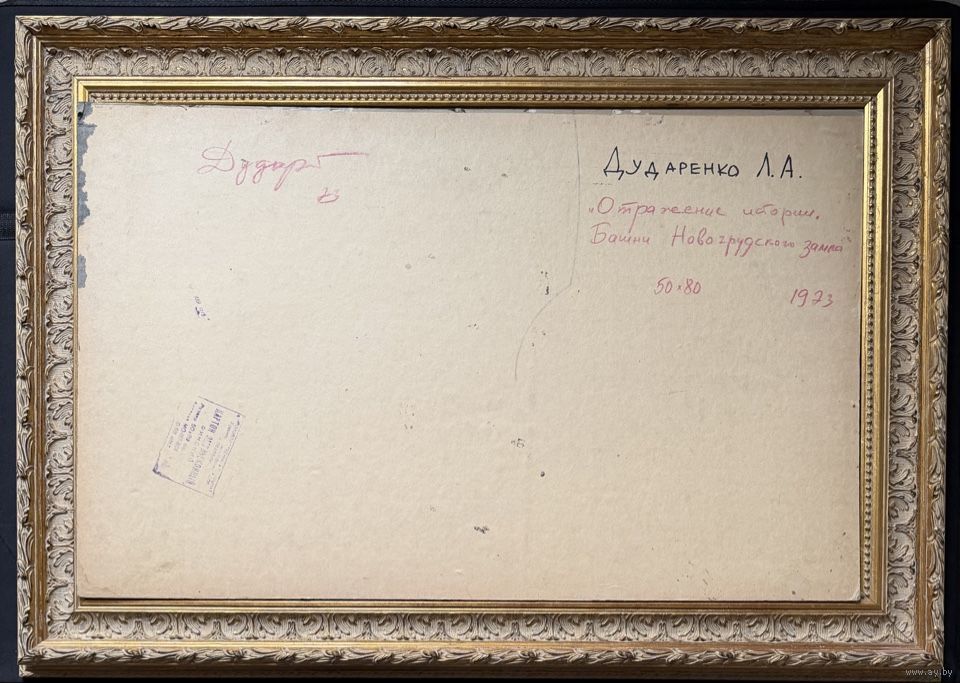 Дудар
73
ДУДАРЕНКО Л.А.
„Отражение истории.
Башни Новогрудского замка"
50×80 1973
КАРТОН
www.ay.by